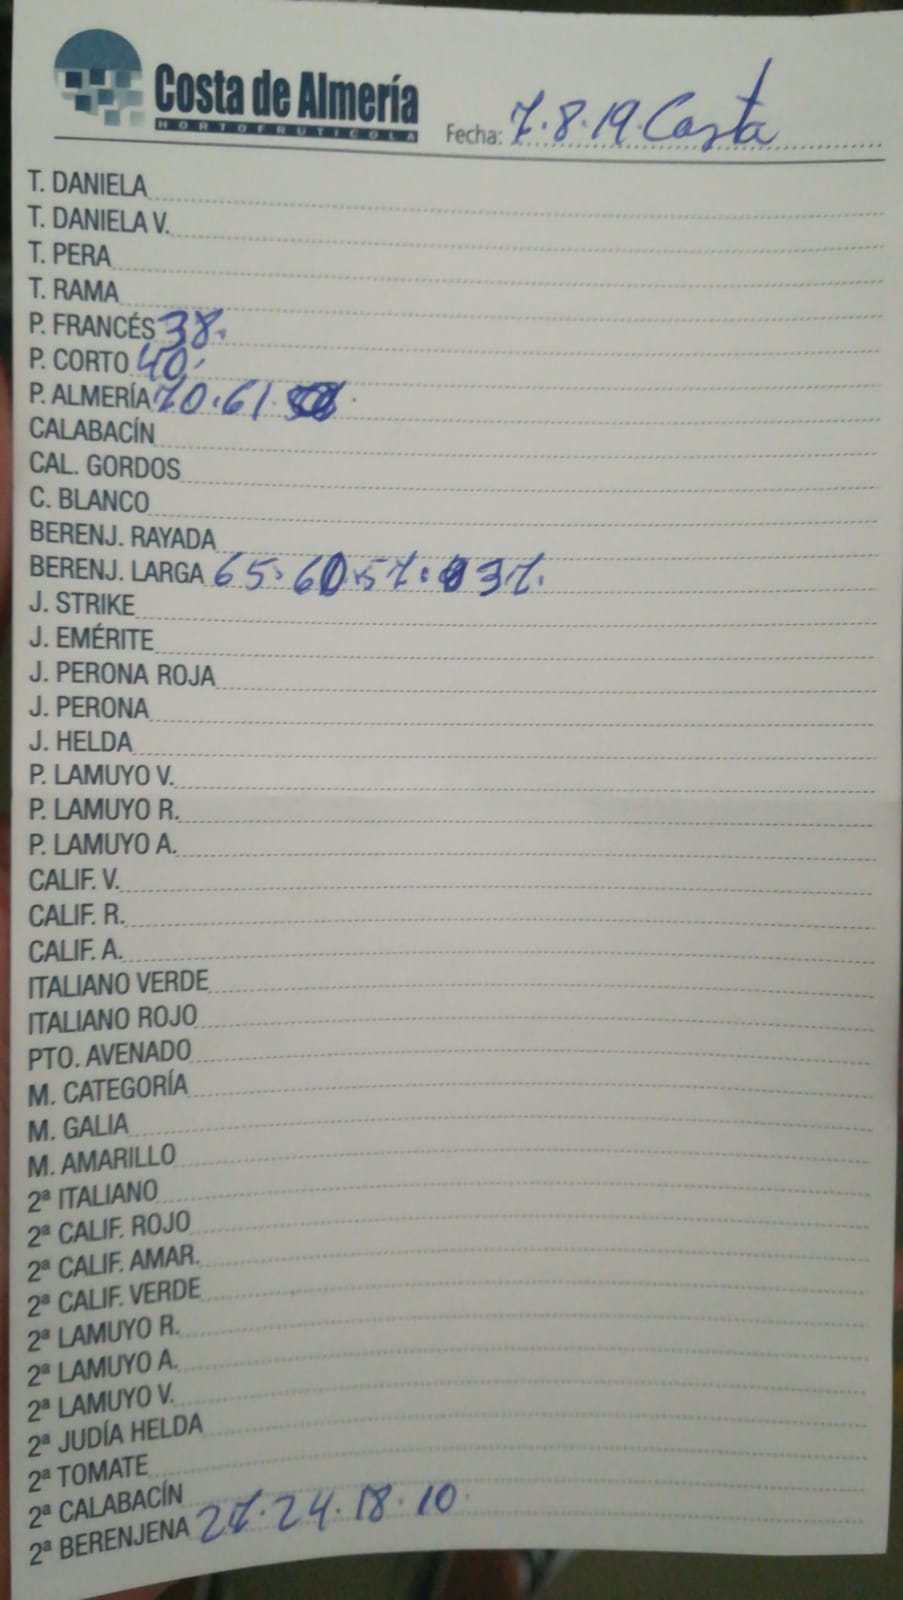 Costa de Almería
HORTOFRUTICOLA
Fecha: 7.8.19. Costa
T. DANIELA
T. DANIELA V.
T. PERA
T. RAMA
P. FRANCÉS 38.
P. CORTO 40.
P. ALMERÍA 70.61.
CALABACÍN
CAL. GORDOS
C. BLANCO
BERENJ. RAYADA
BERENJ. LARGA 65.60.57. 37.
J. STRIKE
J. EMÉRITE
J. PERONA ROJA
J. PERONA
J. HELDA
P. LAMUYO V.
P. LAMUYO R.
P. LAMUYO A.
CALIF. V.
CALIF. R.
CALIF. A.
ITALIANO VERDE
ITALIANO ROJO
PTO. AVENADO
M. CATEGORÍA
M. GALIA
M. AMARILLO
2ª ITALIANO
2ª CALIF. ROJO
2ª CALIF. AMAR.
2ª CALIF. VERDE
2ª LAMUYO R.
2ª LAMUYO A.
2ª LAMUYO V.
2ª JUDÍA HELDA
2ª TOMATE
2ª CALABACÍN
2ª BERENJENA 27.24.18.10.